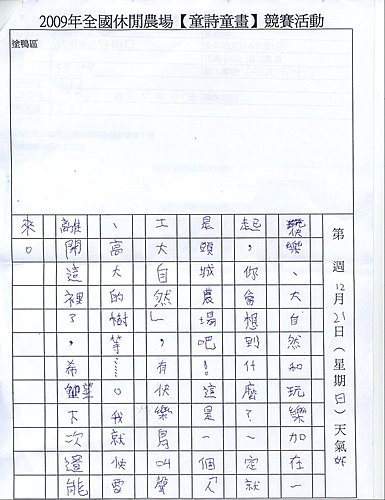 2009年全國休閒農場【童詩童畫】競賽活動
塗鴨區
第 週 12月21日(星期日)天氣好
快樂、大自然和玩樂加在一
起,你會想到什麼?一定就
是頭城農場吧!這是一個「人
工大自然」,有快樂鳥叫聲
、高大的樹等……。我就快要
離開這裡了,希望下次還能
來。